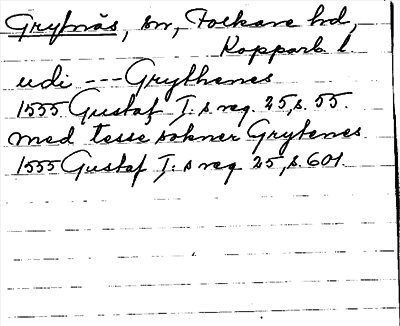 Grytnäs, sn, Folkare hd,
Kopparb. l.
udi --- Grythenes
1555 Gustaf I. s reg. 25, s. 55.
med tesse sokner Grytenes
1555 Gustaf I. s reg 25, s. 601.